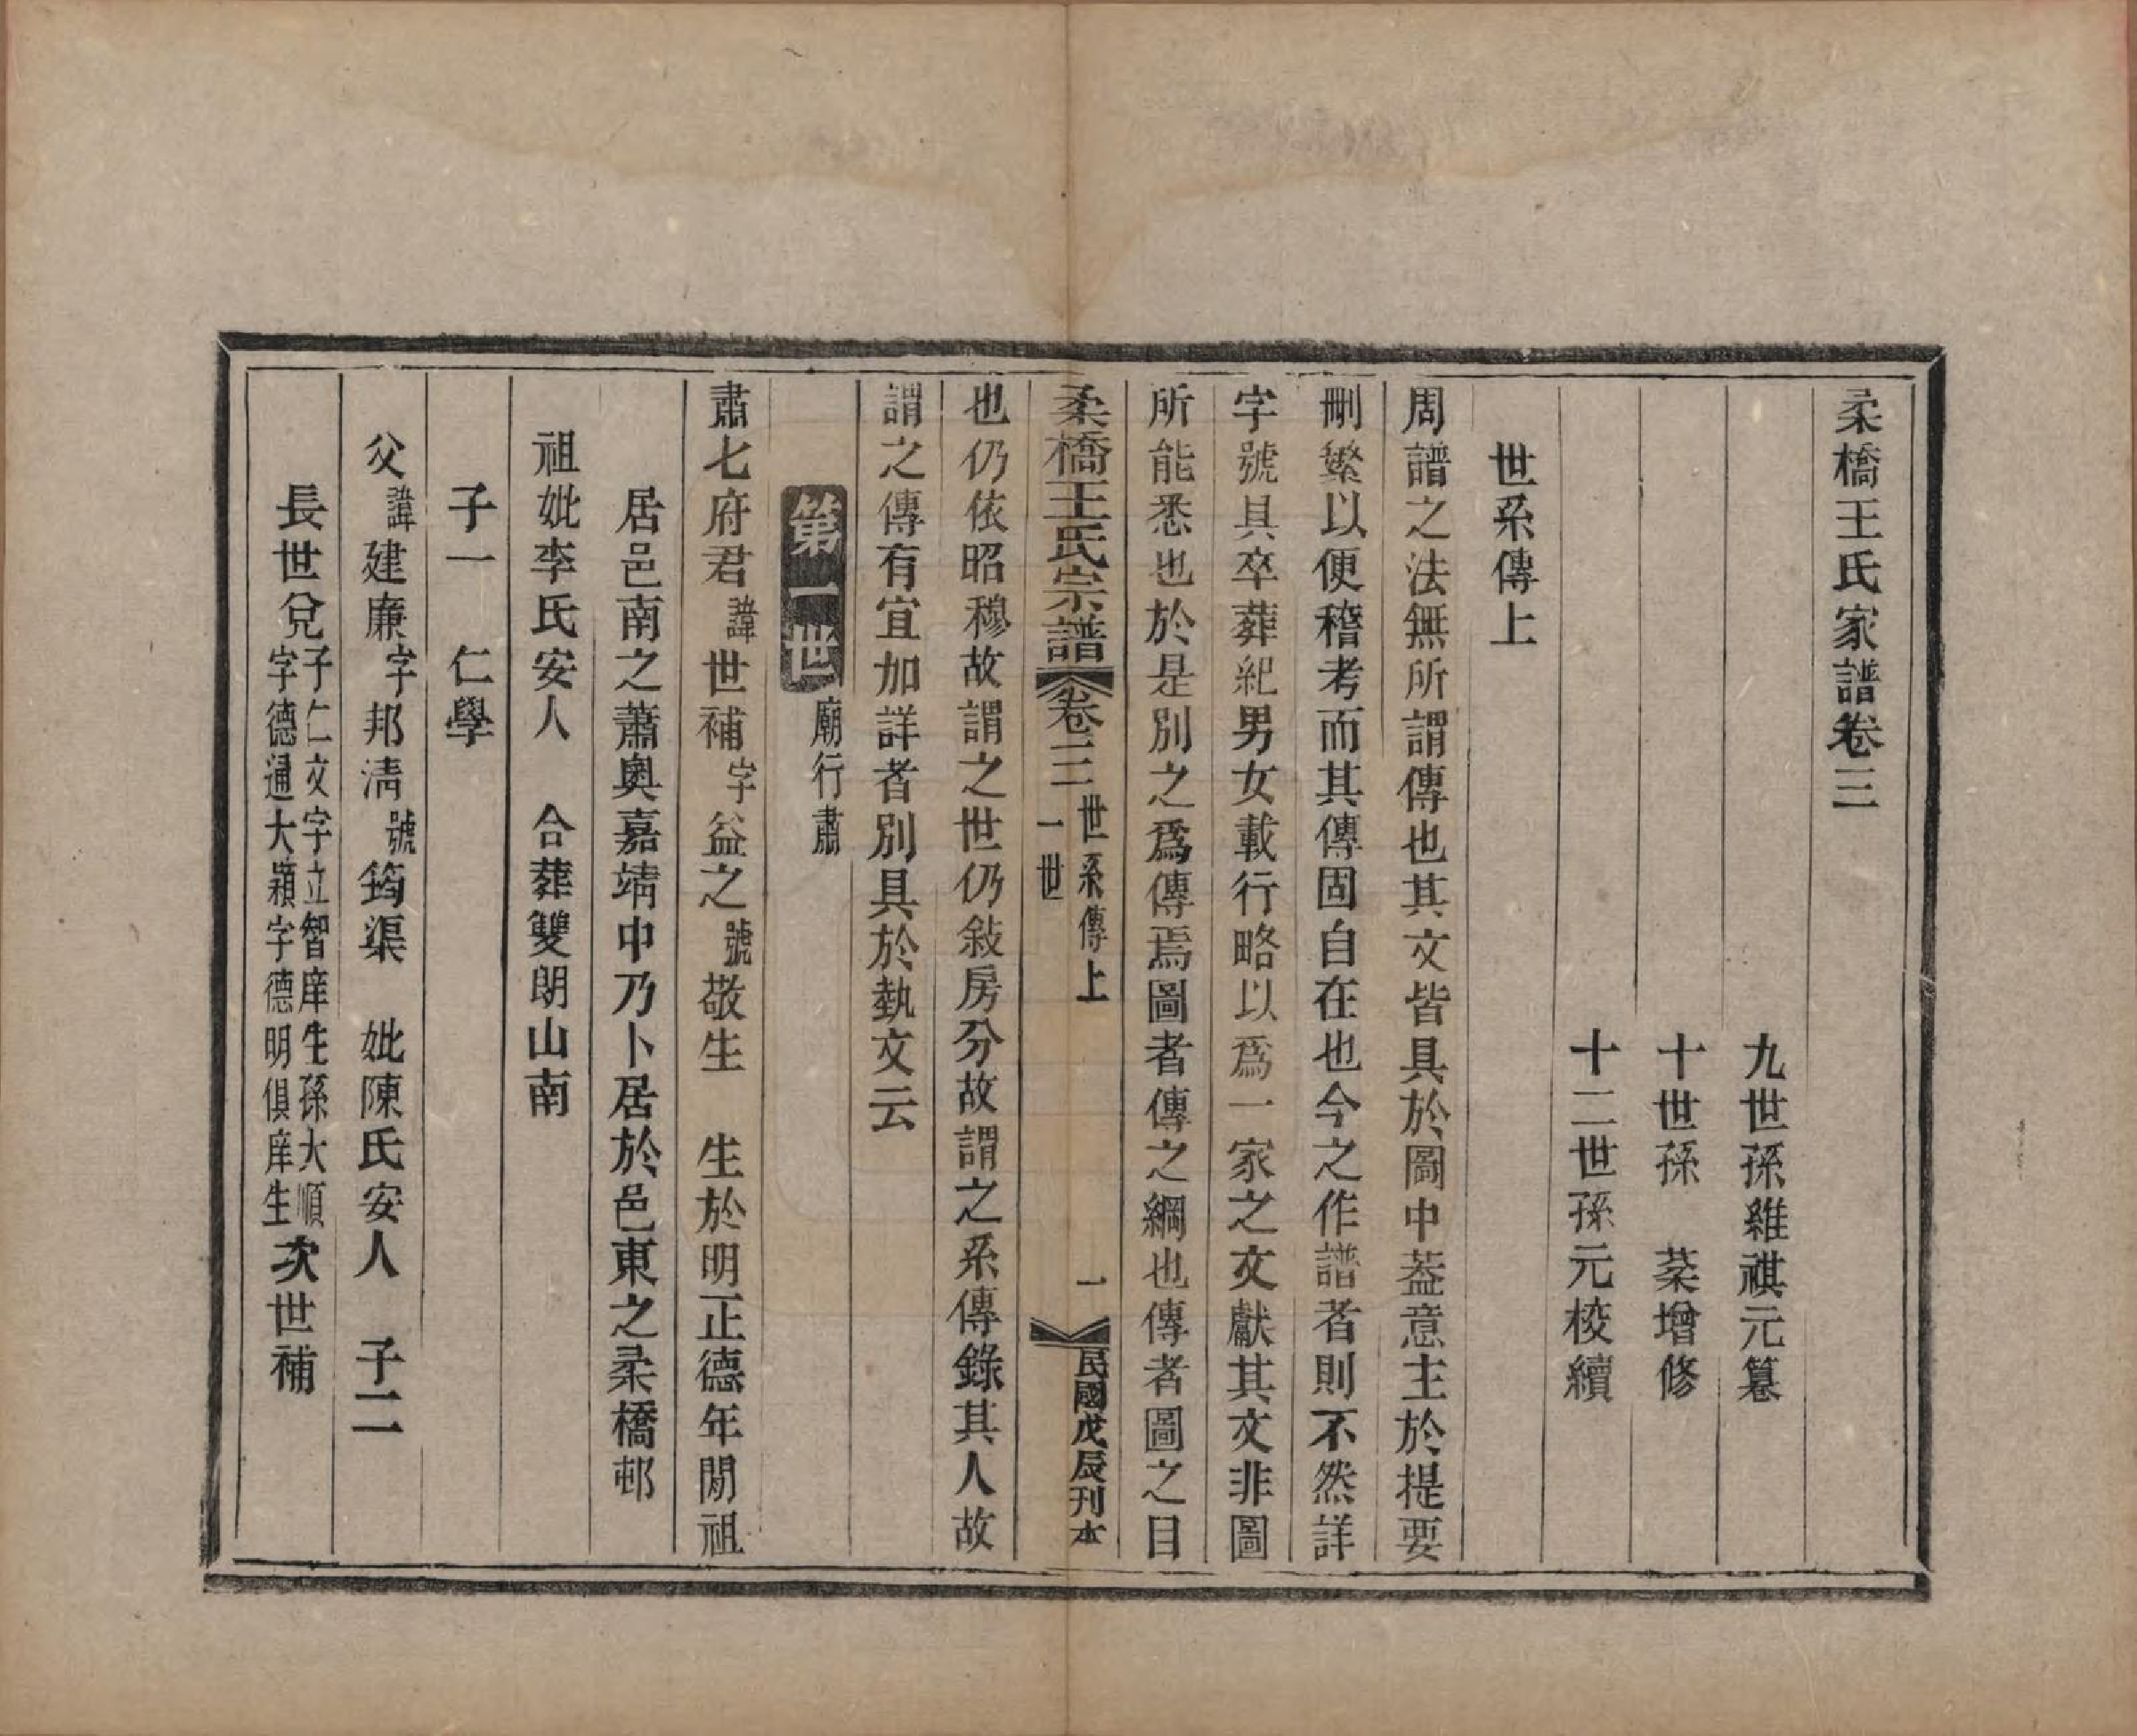 柔橋王氏家譜卷三
九世孫維祺元纂
十世孫　棻增修
十二世孫元棱續
世系傳上
周譜之法無所謂傳也其文皆具於圖中葢意主於提要
刪繁以便稽考而其傳固自在也今之作譜者則不然詳
字號具卒葬紀男女載行略以爲一家之文獻其文非圖
所能悉也於是別之爲傳焉圖者傳之綱也傳者圖之目
柔橋王氏宗譜　卷三　世系傳上　一世　一　民國戊辰刊本
也仍依昭穆故謂之世仍敍房分故謂之系傳錄其人故
謂之傳有宜加詳者別具於執文云
第一世　廟行肅
肅七府君諱世補字益之號敬生　生於明正德年閒祖
居邑南之蕭奧嘉靖中乃卜居於邑東之柔橋邨
祖妣李氏安人　合葬雙朗山南
子一　仁學
父諱建廉字邦淸號筠渠　妣陳氏安人　子二
長世兌子仁文字立智庠生孫大順字德通大顈字德明俱庠生次世補